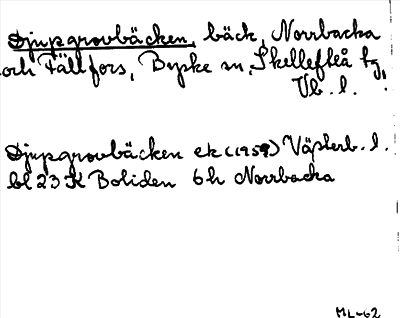 Djupgrovbäcken, bäck, Norrbacka
och Fällfors, Byske sn, Skellefteå tg,
Vb. l.
Djupgrovbäcken ek (1959) Västerb. l.
bl 23 K Boliden 6h Norrbacka
ML-62